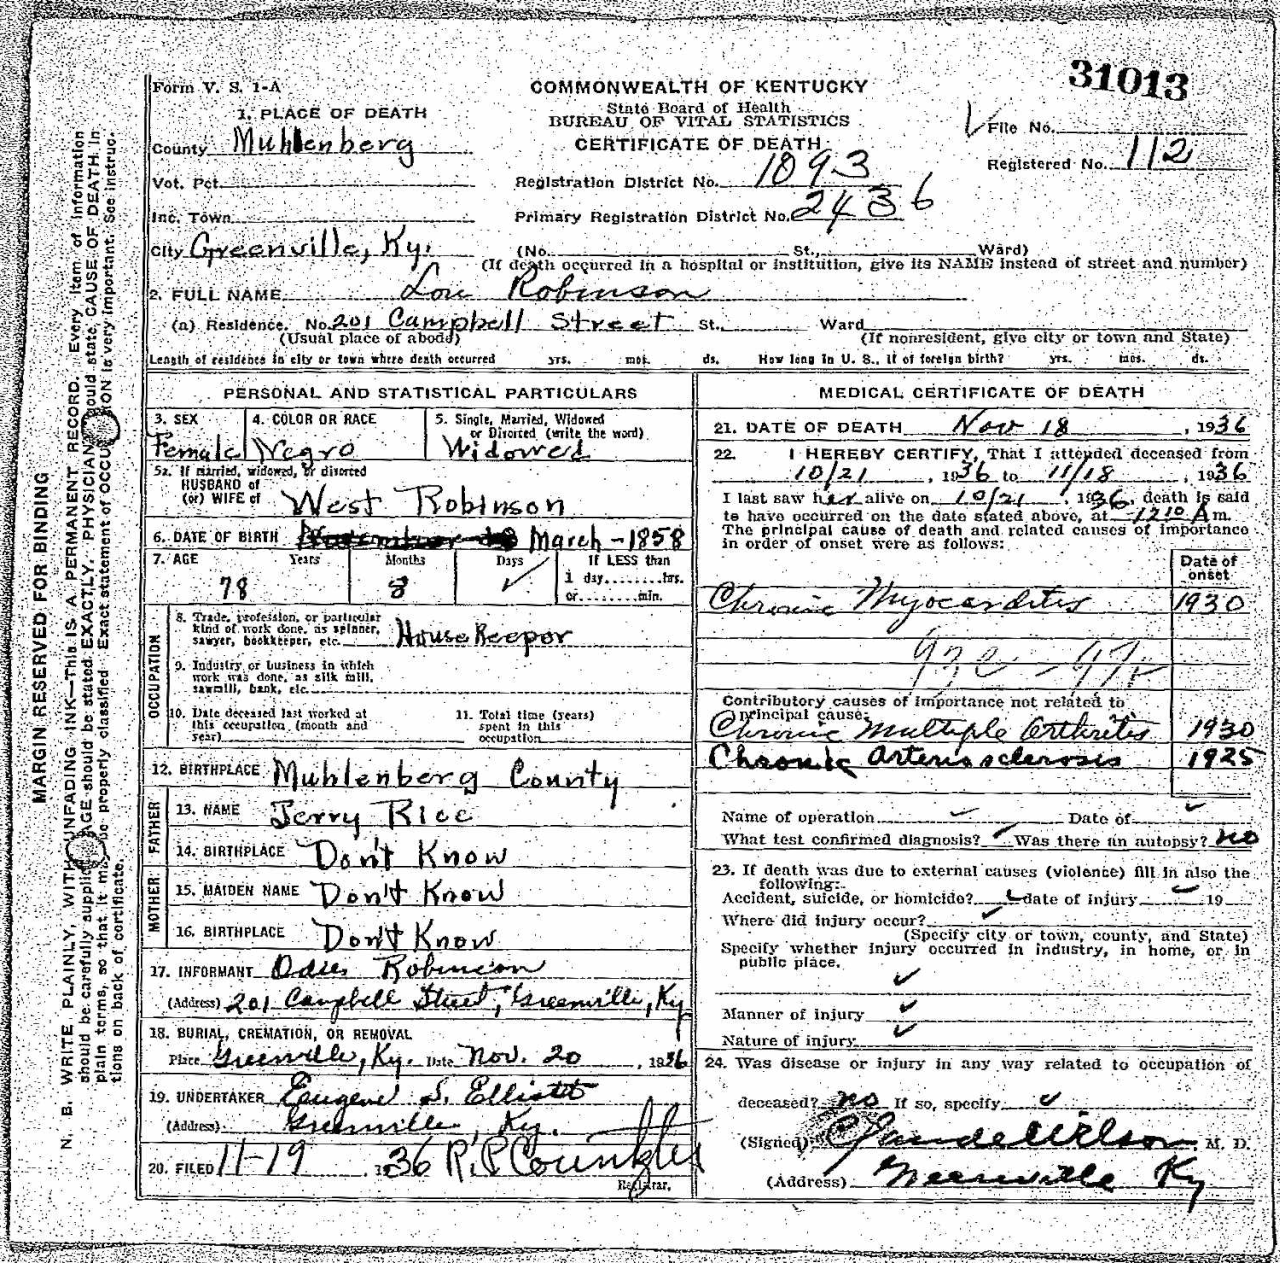 31013
Form V. S. 1-A
COMMONWEALTH OF KENTUCKY
State Board of Health
BUREAU OF VITAL STATISTICS
CERTIFICATE OF DEATH
File No.
Registered No. 112
1. PLACE OF DEATH
County Muhlenberg
Vot. Pct.
Inc. Town
City Greenville, Ky.
Registration District No. 1093
Primary Registration District No. 2436
(No. St., Ward)
(If death occurred in a hospital or institution, give its NAME instead of street and number)
2. FULL NAME Lou Robinson
(a) Residence. No. 201 Campbell Street St., Ward
(Usual place of abode) (If nonresident, give city or town and State)
Length of residence in city or town where death occurred yrs. mos. ds. How long in U. S., if of foreign birth? yrs. mos. ds.
PERSONAL AND STATISTICAL PARTICULARS
3. SEX 4. COLOR OR RACE 5. Single, Married, Widowed
or Divorced (write the word)
Female Negro Widowed
5a. If married, widowed, or divorced
HUSBAND of
(or) WIFE of West Robinson
6. DATE OF BIRTH March - 1858
7. AGE Years Months Days If LESS than
1 day........hrs.
or........min.
78 8 ✓
OCCUPATION
8. Trade, profession, or particular
kind of work done, as spinner,
sawyer, bookkeeper, etc. House Keeper
9. Industry or business in which
work was done, as silk mill,
sawmill, bank, etc.
10. Date deceased last worked at
this occupation (month and
year)
11. Total time (years)
spent in this
occupation
12. BIRTHPLACE Muhlenberg County
FATHER
13. NAME Jerry Rice
14. BIRTHPLACE Don't Know
MOTHER
15. MAIDEN NAME Don't Know
16. BIRTHPLACE Don't Know
17. INFORMANT Robinson
(Address) 201 Campbell Street, Greenville, Ky
18. BURIAL, CREMATION, OR REMOVAL
Place Greenville, Ky. Date Nov. 20, 1936
19. UNDERTAKER Eugene S. Elliott
(Address) Greenville, Ky.
20. FILED 11-19, 1936 R.P.
Registrar.
MEDICAL CERTIFICATE OF DEATH
21. DATE OF DEATH Nov 18, 1936
22. I HEREBY CERTIFY, That I attended deceased from
10/21, 1936 to 11/18, 1936
I last saw her alive on 10/21, 1936 death is said
to have occurred on the date stated above, at 1210 A m.
The principal cause of death and related causes of importance
in order of onset were as follows:
Date of
onset
Chronic Myocarditis 1930
Contributory causes of importance not related to
principal cause:
Chronic Multiple Arthritis 1930
Chronic Arteriosclerosis 1925
Name of operation ✓ Date of ✓
What test confirmed diagnosis? ✓ Was there an autopsy? no
23. If death was due to external causes (violence) fill in also the
following:
Accident, suicide, or homicide? ✓ date of injury ✓ 19
Where did injury occur? ✓
(Specify city or town, county, and State)
Specify whether injury occurred in industry, in home, or in
public place.
✓
Manner of injury ✓
Nature of injury ✓
24. Was disease or injury in any way related to occupation of
deceased? no If so, specify ✓
(Signed) Claude Wilson M. D.
(Address) Greenville Ky
MARGIN RESERVED FOR BINDING
N. B. WRITE PLAINLY, WITH UNFADING INK—THIS IS A PERMANENT RECORD. Every item of information
should be carefully supplied. AGE should be stated EXACTLY. PHYSICIANS should state CAUSE OF DEATH in
plain terms, so that it may be properly classified. Exact statement of OCCUPATION is very important. See instruc-
tions on back of certificate.